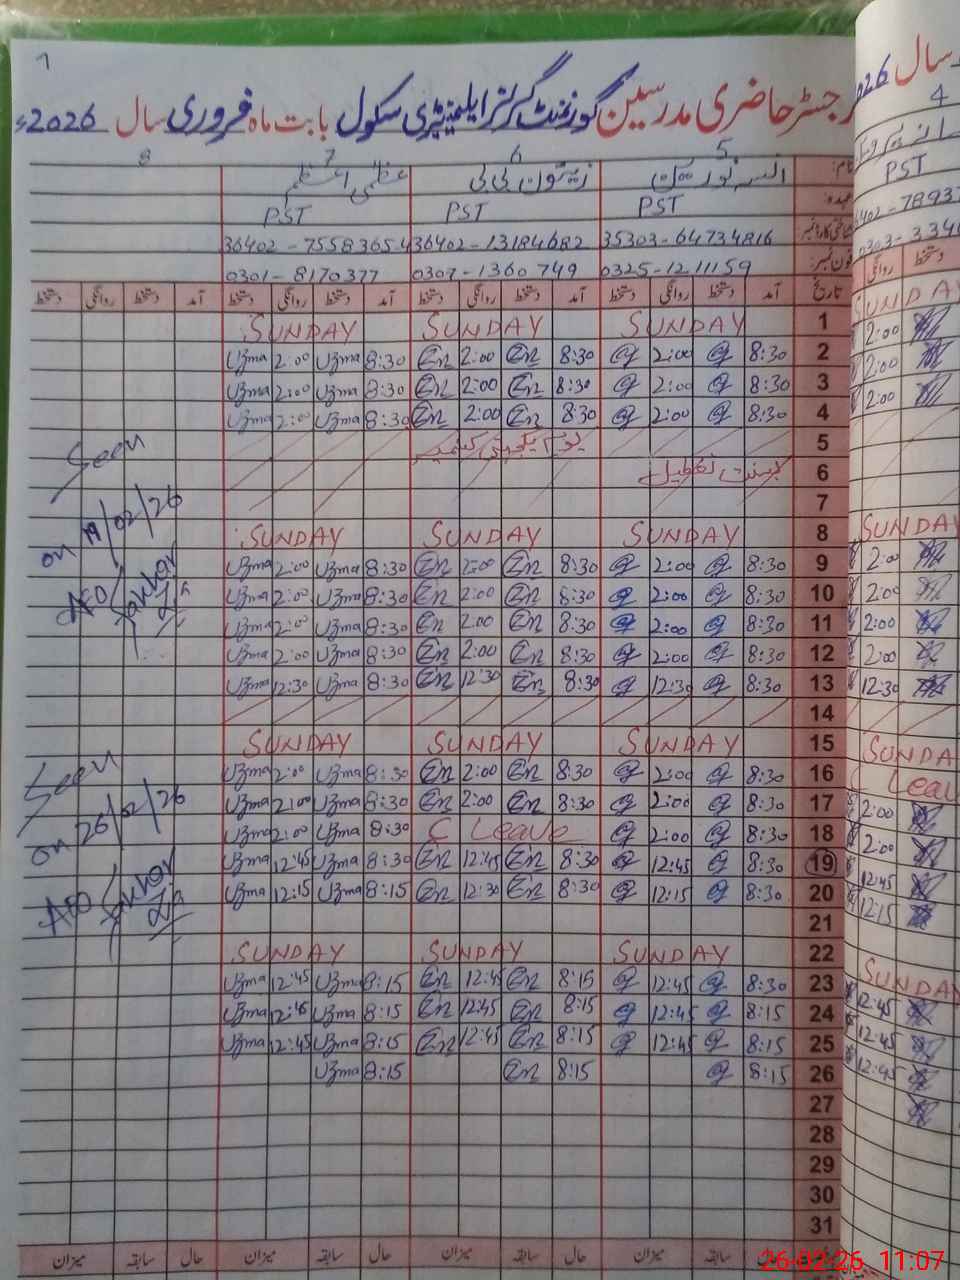 7
رجسٹر حاضری مدرسین گورنمنٹ گرلز ایلیمنٹری سکول بابت ماہ فروری سال 2026ء
5 6 7 8
نام:
زیتون بی بی
عظمیٰ اعظم
عہدہ: PST PST PST
شناختی کارڈ نمبر 35303-64734816 36402-13184682 36402-75583654
فون نمبر: 0325-1211159 0307-1360749 0301-8170377
تاریخ آمد دستخط روانگی دستخط آمد دستخط روانگی دستخط آمد دستخط روانگی دستخط آمد دستخط روانگی دستخط
1 SUNDAY SUNDAY SUNDAY
2 8:30 2:00 8:30 2:00 8:30 Uzma 2:00 Uzma
3 8:30 2:00 8:30 2:00 8:30 Uzma 2:00 Uzma
4 8:30 2:00 8:30 2:00 8:30 Uzma 2:00 Uzma
5 یوم یکجہتی کشمیر
6 بسنت تعطیل
7
8 SUNDAY SUNDAY SUNDAY
9 8:30 2:00 8:30 2:00 8:30 Uzma 2:00 Uzma
10 8:30 2:00 8:30 2:00 8:30 Uzma 2:00 Uzma
11 8:30 2:00 8:30 2:00 8:30 Uzma 2:00 Uzma
12 8:30 2:00 8:30 2:00 8:30 Uzma 2:00 Uzma
13 8:30 12:30 8:30 12:30 8:30 Uzma 12:30 Uzma
14
15 SUNDAY SUNDAY SUNDAY
16 8:30 2:00 8:30 2:00 8:30 Uzma 2:00 Uzma
17 8:30 2:00 8:30 2:00 8:30 Uzma 2:00 Uzma
18 8:30 2:00 C Leave 8:30 Uzma 2:00 Uzma
19 8:30 12:45 8:30 12:45 8:30 Uzma 12:45 Uzma
20 8:30 12:15 8:30 12:30 8:15 Uzma 12:15 Uzma
21
22 SUNDAY SUNDAY SUNDAY
23 8:30 12:45 8:15 12:45 8:15 Uzma 12:45 Uzma
24 8:15 12:45 8:15 12:45 8:15 Uzma 12:45 Uzma
25 8:15 12:45 8:15 12:45 8:15 Uzma 12:45 Uzma
26 8:15 8:15 8:15 Uzma
27
28
29
30
31
حال سابقہ میزان حال سابقہ میزان حال سابقہ میزان حال سابقہ میزان
Seen
on 19/02/26
AEO
Seen
on 26/02/26
AEO
سال 2026
4
PST
روانگی دستخط
SUNDAY
2:00
2:00
2:00
SUNDAY
2:00
2:00
2:00
2:00
12:30
SUNDAY
Leav
2:00
2:00
12:45
12:15
SUNDAY
12:45
12:45
12:45
26-02-26 11:07